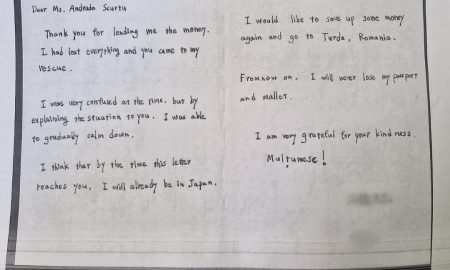 Dear Ms. Andrada Scurtu
Thank you for lending me the money.
I had lost everything and you came to my
rescue.
I was very confused at the time, but by
explaining the situation to you, I was able
to gradually calm down.
I think that by the time this letter
reaches you, I will already be in Japan.
I would like to save up some money
again and go to Turda, Romania.
From now on, I will never lose my passport
and wallet.
I am very grateful for your kindness.
Multumesc!